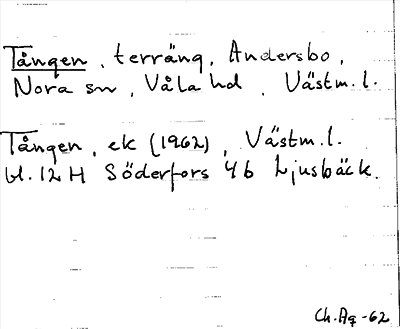 Tången, terräng, Andersbo,
Nora sn, Våla hd, Västm.l.
Tången, ek (1962), Västm.l.
bl. 12 H Söderfors 4b Ljusbäck.
Ch.Ag -62